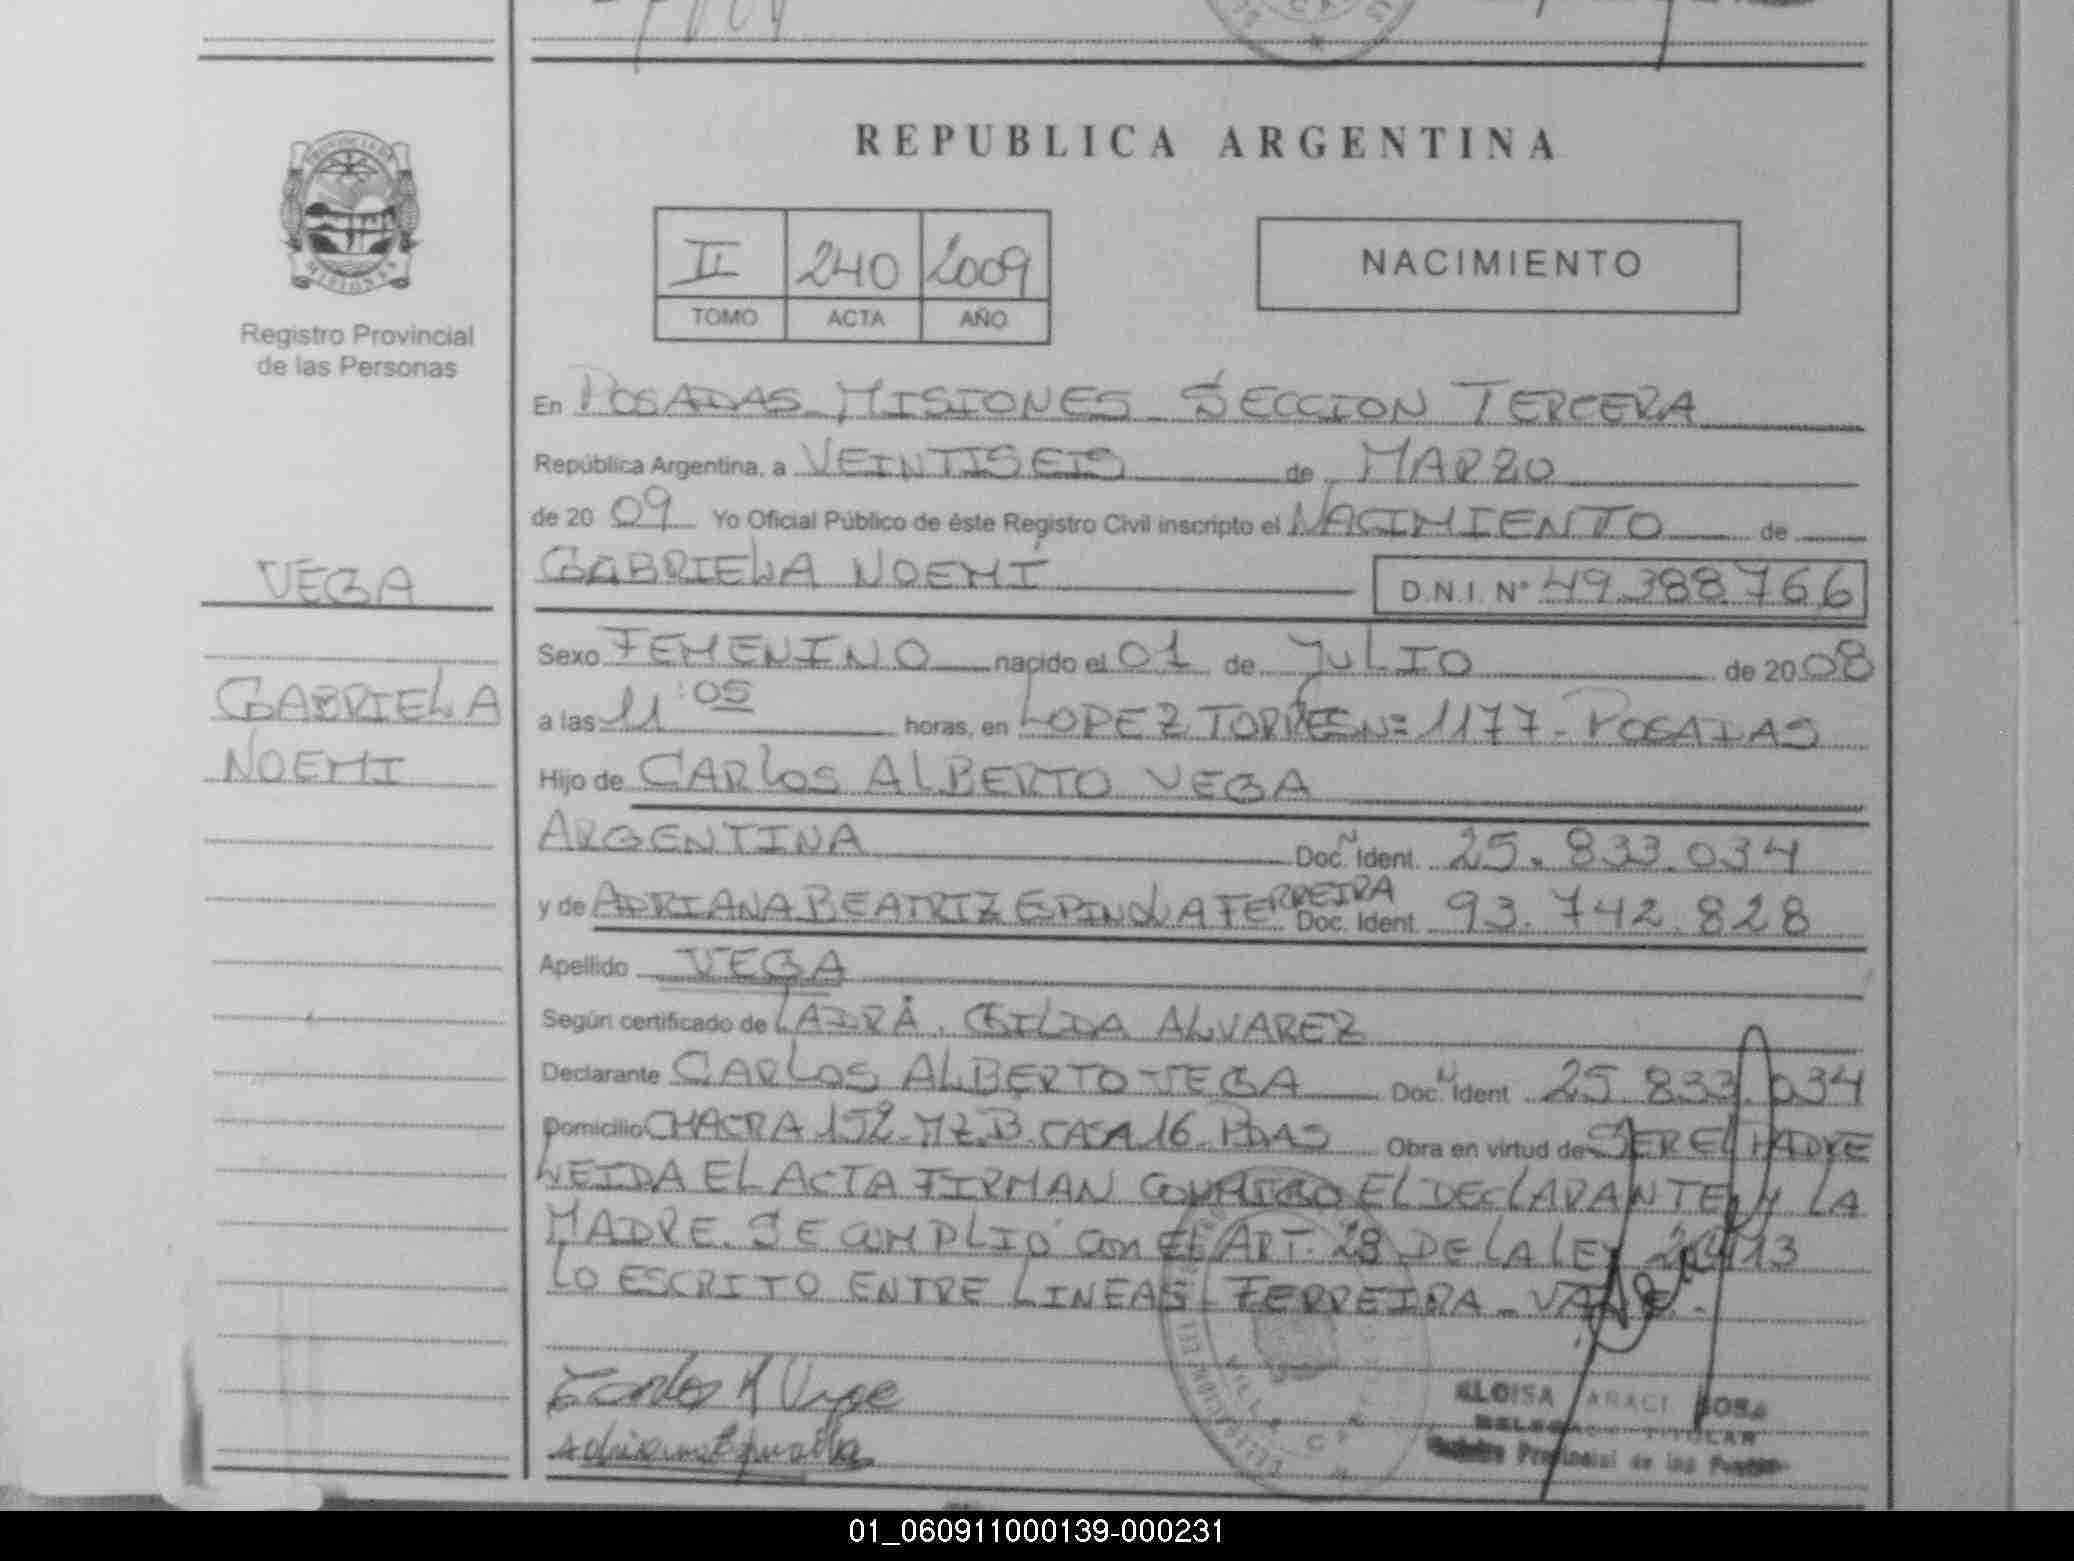 REPUBLICA ARGENTINA
II 240 2009
TOMO ACTA AÑO
NACIMIENTO
Registro Provincial
de las Personas
En POSADAS MISIONES SECCION TERCERA
República Argentina, a VEINTISEIS de MARZO
de 20 09 Yo Oficial Público de éste Registro Civil inscripto el NACIMIENTO de
GABRIELA NOEMÍ D.N.I. Nº 49.388.766
VEGA
GABRIELA
NOEMI
Sexo FEMENINO nacido el 01 de JULIO de 20 08
a las 11:05 horas, en LOPEZ TORRES Nº 1177 - POSADAS
Hijo de CARLOS ALBERTO VEGA
ARGENTINA Doc. Ident. 25.833.034
y de ADRIANA BEATRIZ ESPINOLA FERREIRA Doc. Ident. 93.742.828
Apellido VEGA
Según certificado de LA DRA. GILDA ALVAREZ
Declarante CARLOS ALBERTO VEGA Doc. Ident 25.833.034
Domicilio CHACRA 152 - MZ B. CASA 16 - PDAS Obra en virtud de SER EL PADRE
LEIDA EL ACTA FIRMAN CONMIGO EL DECLARANTE Y LA
MADRE. SE CUMPLIO CON EL ART. 28 DE LA LEY 26413
LO ESCRITO ENTRE LINEAS - FERREIRA - VALE.
Carlos A Vega
Adriana Espinola
ELOISA ARACI SOSA
TITULAR
Registro Provincial de las Personas
01_060911000139-000231